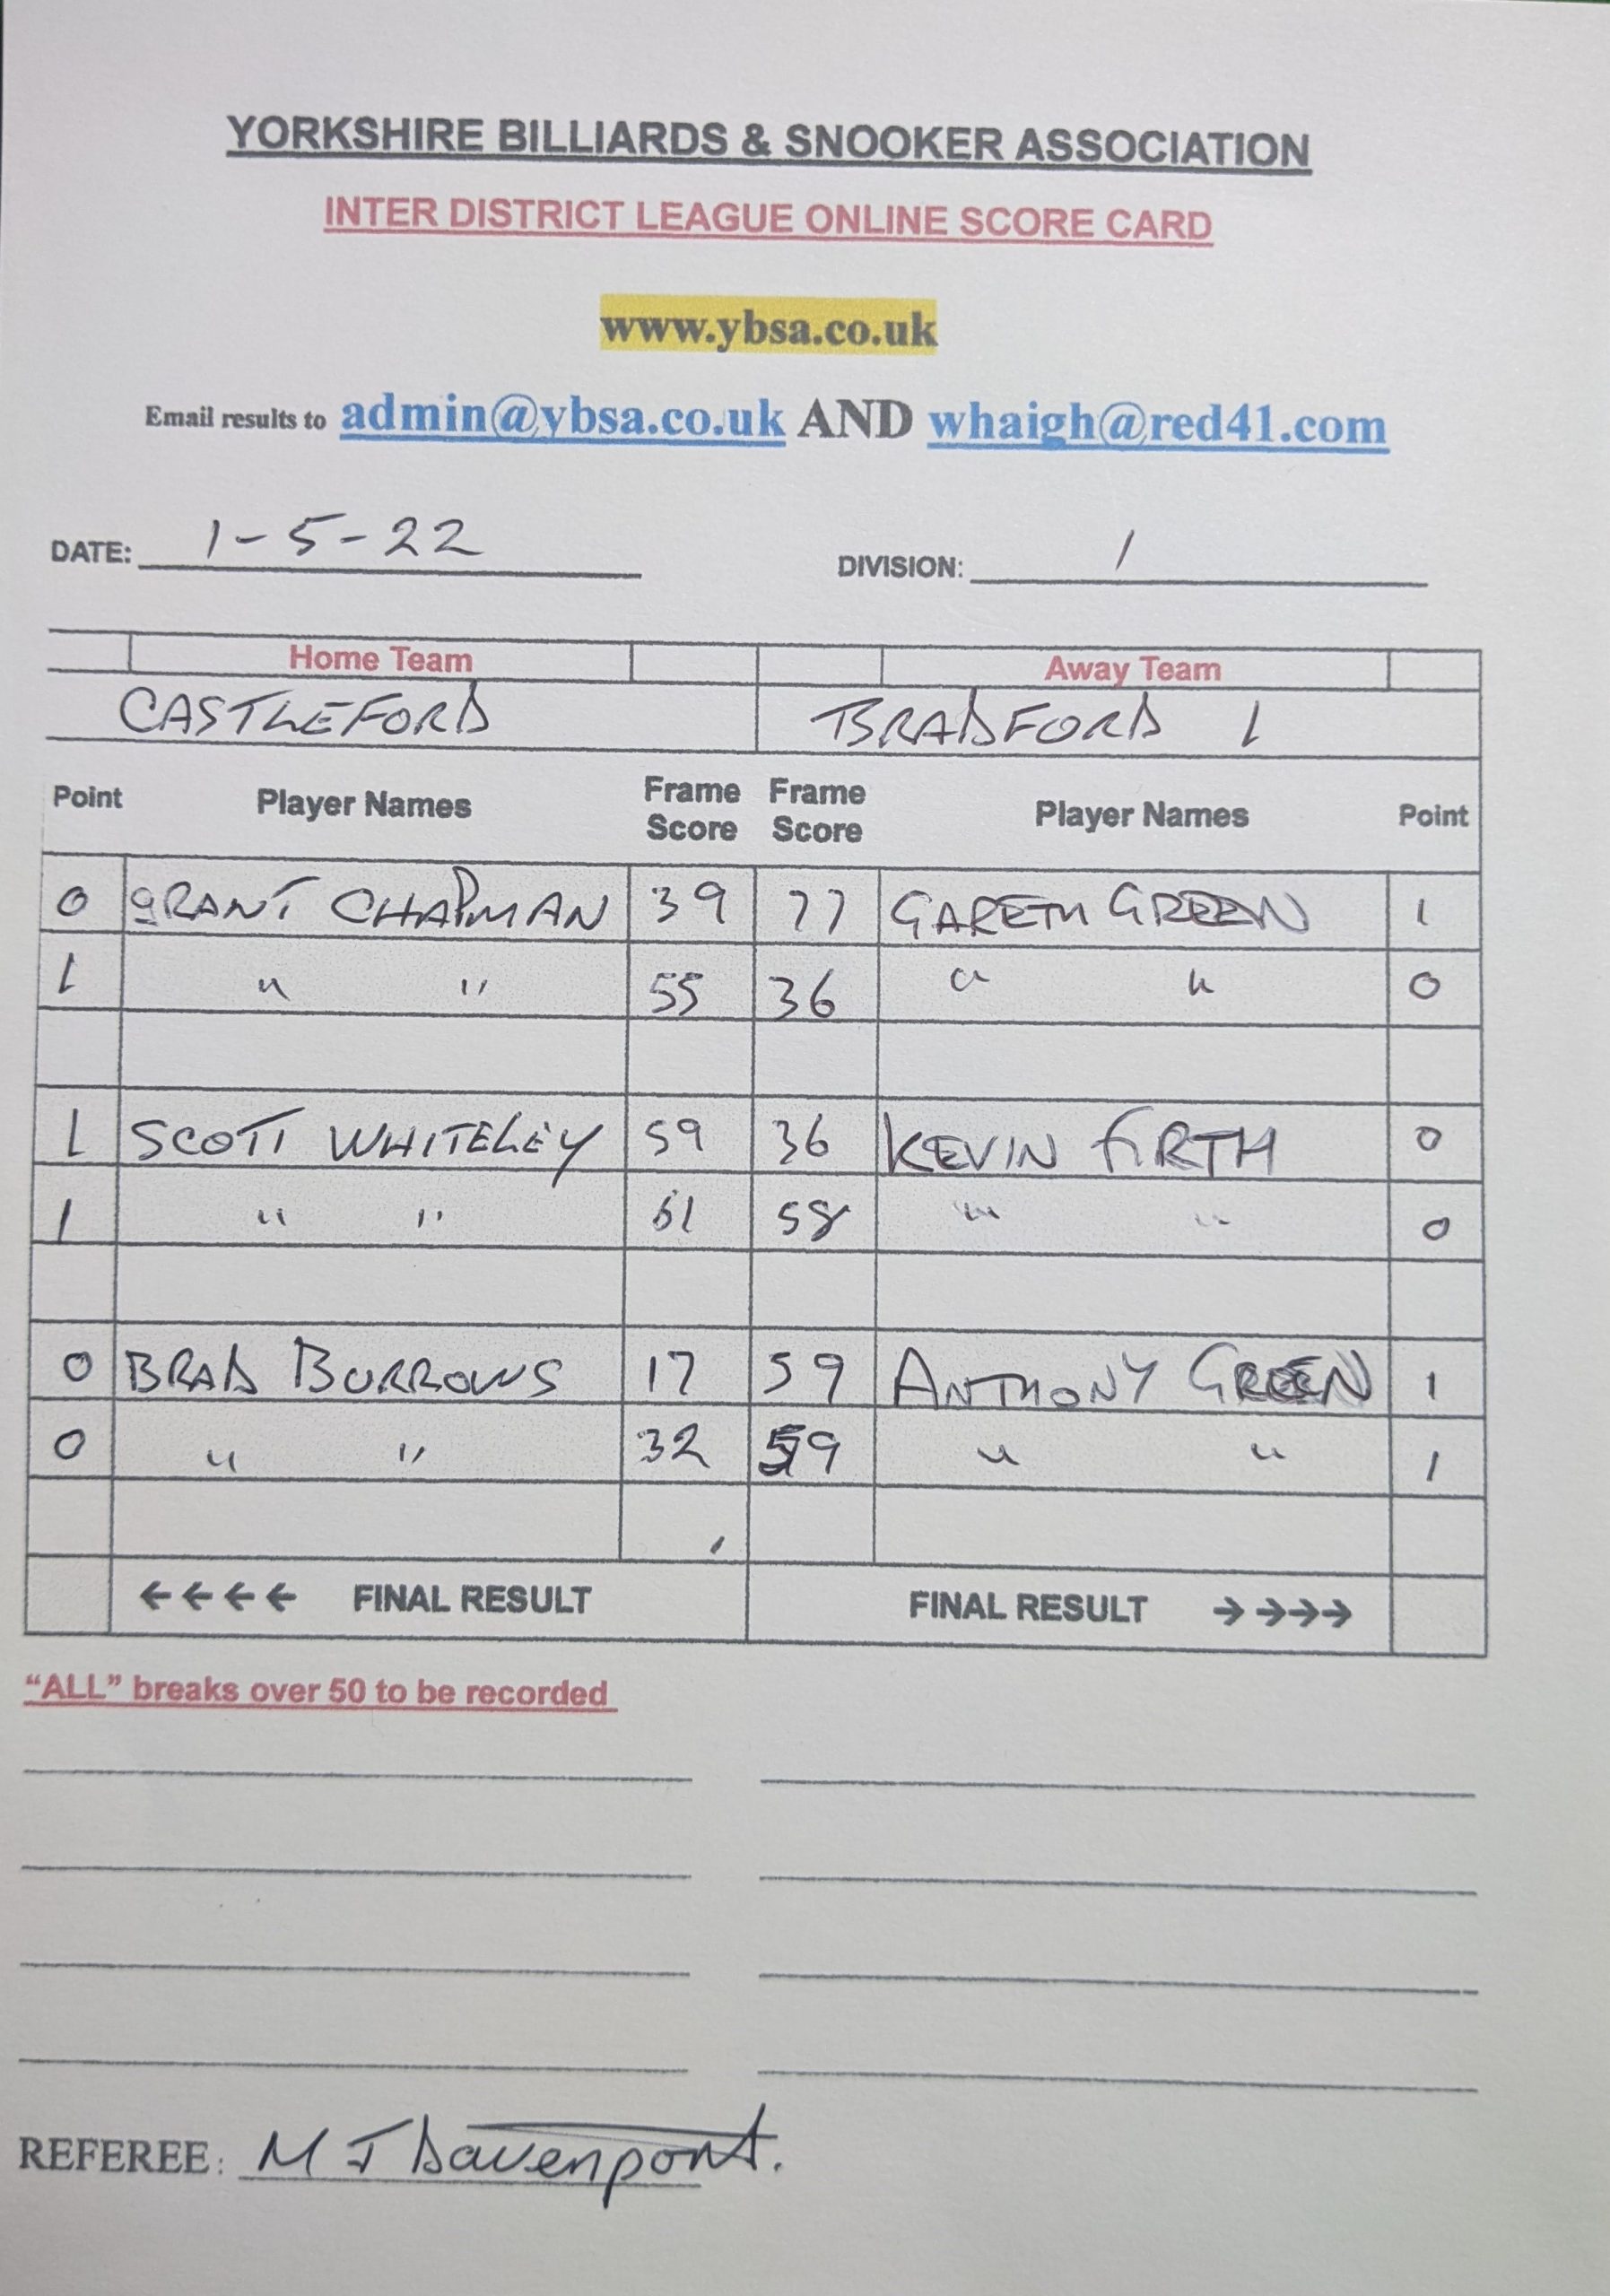 YORKSHIRE BILLIARDS & SNOOKER ASSOCIATION
INTER DISTRICT LEAGUE ONLINE SCORE CARD
www.ybsa.co.uk
Email results to admin@ybsa.co.uk AND whaigh@red41.com
DATE: 1-5-22 DIVISION: 1
Home Team Away Team
CASTLEFORD BRADFORD 1
Point Player Names Frame Score Frame Score Player Names Point
0 GRANT CHAPMAN 39 77 GARETH GREEN 1
1 " " 55 36 " " 0
1 SCOTT WHITELEY 59 36 KEVIN FIRTH 0
1 " " 61 58 " " 0
0 BRAD BURROWS 17 59 ANTHONY GREEN 1
0 " " 32 59 " " 1
←←←← FINAL RESULT FINAL RESULT →→→→
"ALL" breaks over 50 to be recorded
REFEREE: M J Davenport.